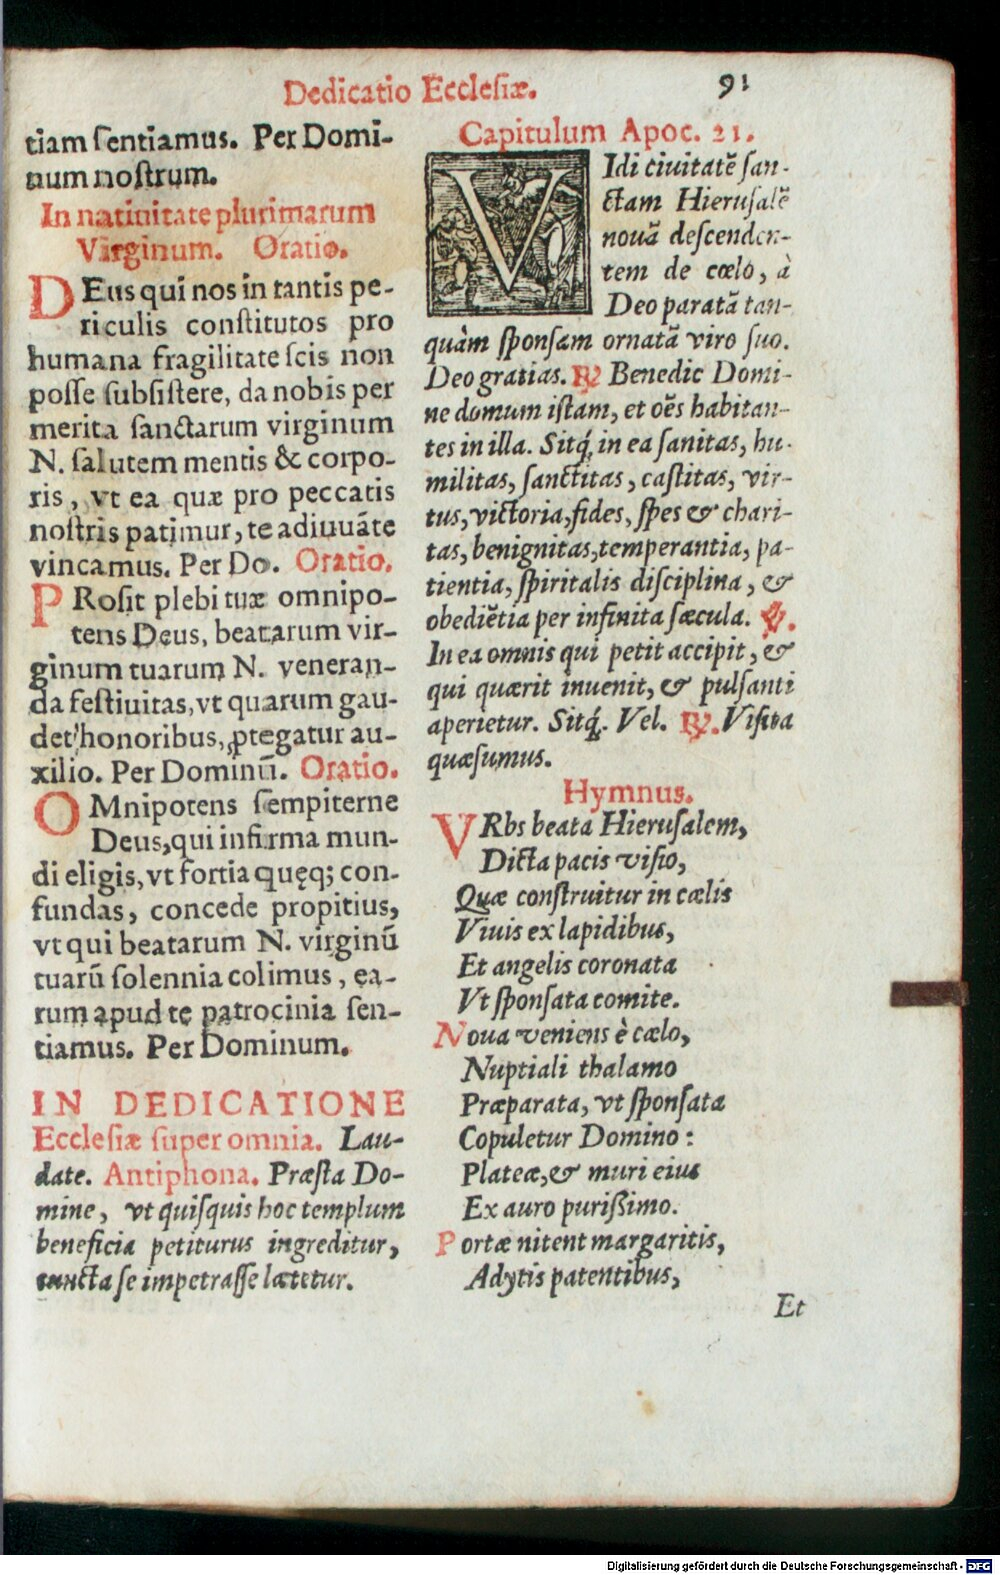 Dedicatio Ecclesiæ. 91
tiam ſentiamus. Per Domi-
num noſtrum.
In natiuitate plurimarum
Virginum. Oratio.
DEus qui nos in tantis pe-
riculis conſtitutos pro
humana fragilitate ſcis non
poſſe ſubſiſtere, da nobis per
merita ſanctarum virginum
N. ſalutem mentis & corpo-
ris, vt ea quæ pro peccatis
noſtris patimur, te adiuuāte
vincamus. Per Do. Oratio.
PRoſit plebi tuæ omnipo-
tens Deus, beatarum vir-
ginum tuarum N. veneran-
da feſtiuitas, vt quarum gau-
det honoribus, ꝓtegatur au-
xilio. Per Dominū. Oratio.
OMnipotens ſempiterne
Deus, qui infirma mun-
di eligis, vt fortia quęq; con-
fundas, concede propitius,
vt qui beatarum N. virginū
tuarū ſolennia colimus, ea-
rum apud te patrocinia ſen-
tiamus. Per Dominum.
IN DEDICATIONE
Eccleſiæ ſuper omnia. Lau-
date. Antiphona. Præſta Do-
mine, vt quiſquis hoc templum
beneficia petiturus ingreditur,
cuncta ſe impetraſſe lætetur.
Capitulum Apoc. 21.
VIdi ciuitatē ſan-
ctam Hieruſalē
nouā deſcenden-
tem de cœlo, à
Deo paratā tan-
quàm ſponſam ornatā viro ſuo.
Deo gratias. ℟ Benedic Domi-
ne domum iſtam, et oēs habitan-
tes in illa. Sitq́; in ea ſanitas, hu-
militas, ſanctitas, caſtitas, vir-
tus, victoria, fides, ſpes & chari-
tas, benignitas, temperantia, pa-
tientia, ſpiritalis diſciplina, &
obediētia per infinita ſæcula. ℣.
In ea omnis qui petit accipit, &
qui quærit inuenit, & pulſanti
aperietur. Sitq́;. Vel. ℟. Viſita
quæſumus.
Hymnus.
VRbs beata Hieruſalem,
Dicta pacis viſio,
Quæ conſtruitur in cælis
Viuis ex lapidibus,
Et angelis coronata
Vt ſponſata comite.
Noua veniens è cælo,
Nuptiali thalamo
Præparata, vt ſponſata
Copuletur Domino:
Plateæ, & muri eius
Ex auro puriſſimo.
Portæ nitent margaritis,
Adytis patentibus,
Et
Digitalisierung gefördert durch die Deutsche Forschungsgemeinschaft - DFG